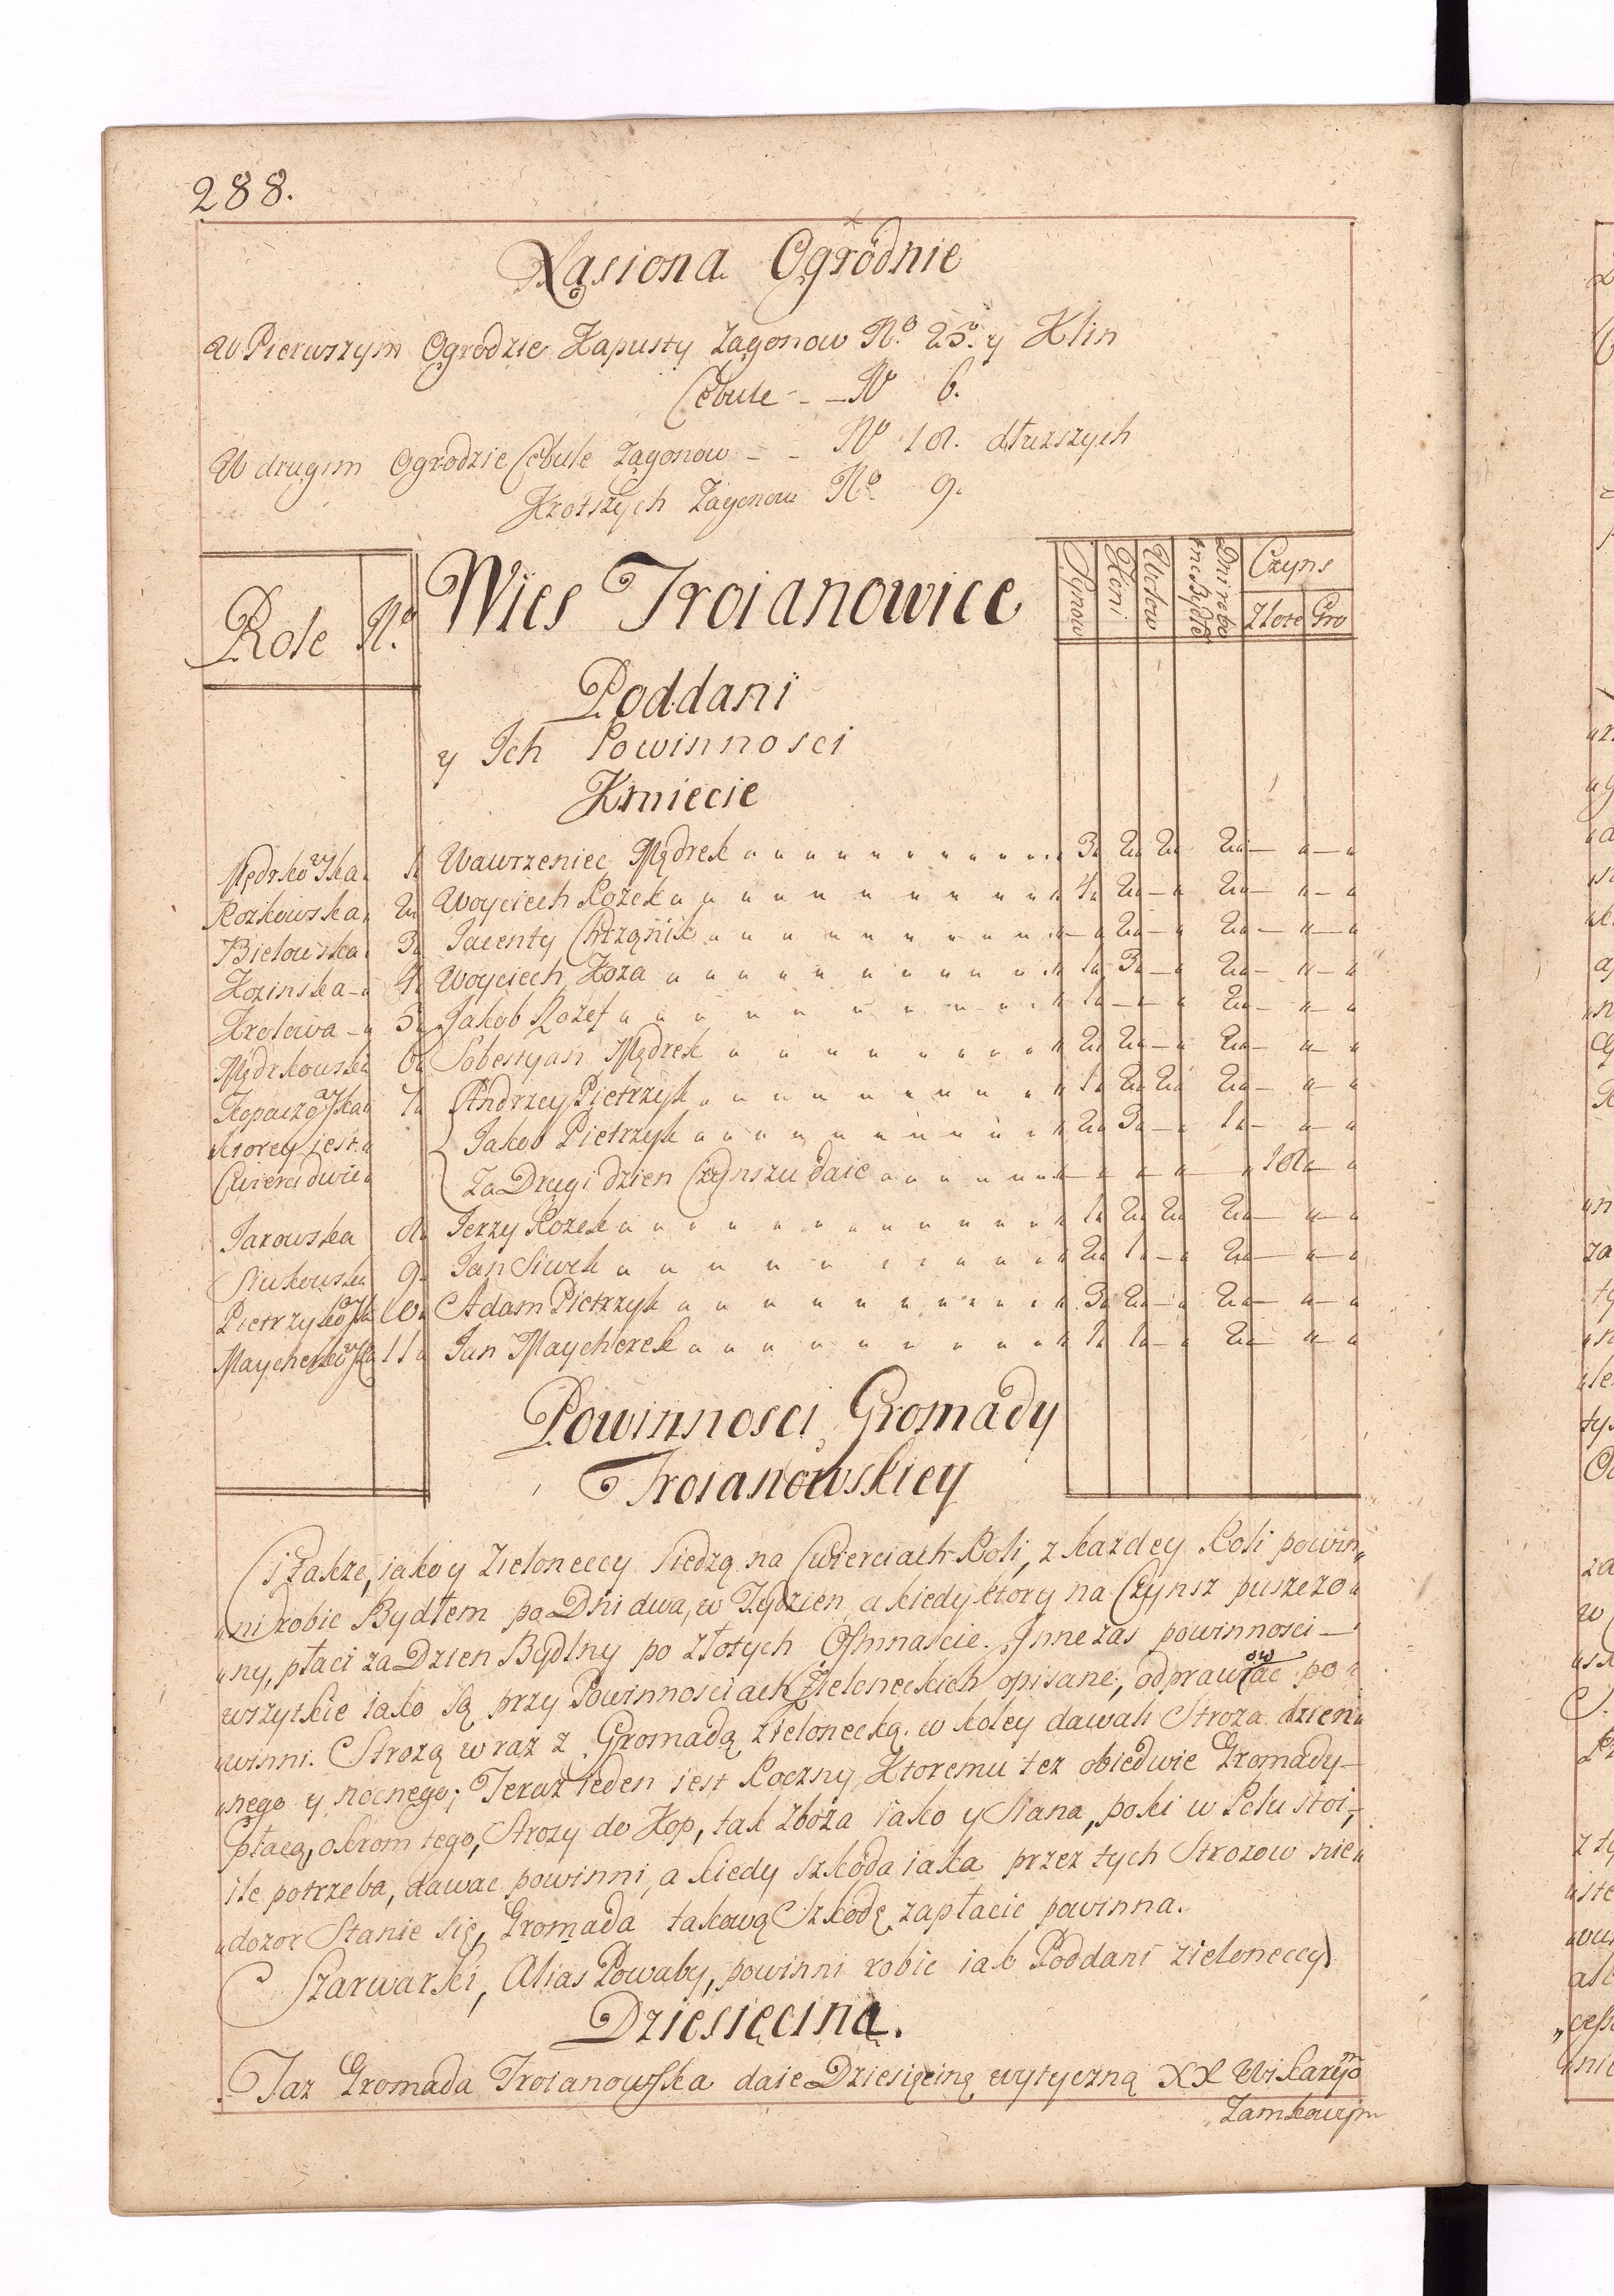 288.
Nasiona Ogrodnie
W Pierwszym Ogrodzie Kapusty Zagonow No. 25. y Klin
Cebule - - No 6.
W drugim Ogrodzie Cebule Zagonow - - No 18. dłuzszych
Krotszych Zagonow No. 9.
Role No. Wies Troianowice Synow Koni Wołow Dni robo cze Bydłe Czyns Złote Gro
Poddani
y Ich Powinnosci
Kmiecie
Mędrkowska 1 Wawrzeniec Mędrek 3 2 2 2 — —
Rozkowska 2 Woyciech Rożek 4 2 — 2 — —
Bielowska 3 Jacenty Chrząnik — 2 — 2 — —
Kozinska 4 Woyciech Koza 1 3 — 2 — —
Krolowa 5 Jakob Rożek 1 — — 2 — —
Mędrkowska 6 Sobestyan Mędrek 2 2 — 2 — —
Kopaczowska 7 Andrzey Pietrzyk 1 2 2 2 — —
ktorey jest Jakob Pietrzyk 2 3 — 1 — —
Cwierci dwie Za Drugi dzien Czynszu daie — — — — 18 —
Jarowska 8 Jerzy Rożek 1 2 2 2 — —
Siukowska 9 Jan Siwek 2 1 — 2 — —
Pietrzykowska 10 Adam Pietrzyk 3 2 — 2 — —
Maycherkowska 11 Jan Maycherek 1 1 — 2 — —
Powinnosci Gromady
Troianowskiey
Ci Także, iako y Zieloneccy siedzą na Cwierciach Roli, z kazdey Roli powin„
„ni robic Bydłem po Dni dwa, w Tydzien, a kiedy ktory na Czynsz puszczo„
„ny, płaci za Dzien Bydlny po złotych Osmnascie. Inne zas powinnosci —
wszytkie iako są przy Powinnosciach Zieloneckich opisane, odprawować po„
„winni. Strożą wraz z Gromadą Zielonecką. w koley dawali Stroza dzien„
„nego y nocnego; Teraz ieden iest Roczny, Ktoremu tez obiedwie Gromady —
płacą, okrom tego, Strozy do Kop, tak zboża iako y Siana, poki w Polu stoi,
ile potrzeba, dawac powinni, a kiedy szkoda iaka przez tych Strozow nie„
„dozor Stanie się, Gromada takową Szkodę zapłacic powinna.
Szarwarki, Alias Powaby, powinni robic iak Poddani Zieloneccy.
Dziesięciną.
Taz Gromada Troianowska daie Dziesięcinę wytyczną XX Wikaryom
Zamkowym